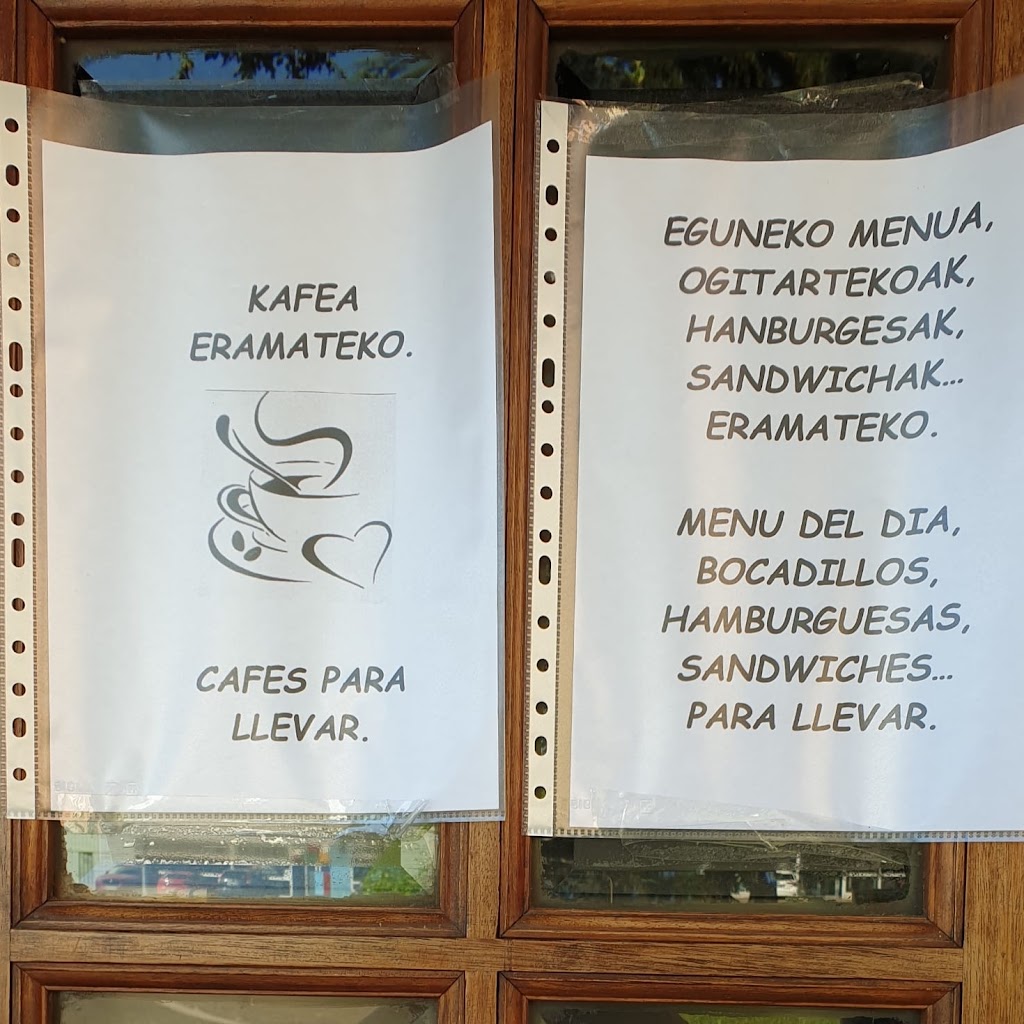 KAFEA
ERAMATEKO.
CAFES PARA
LLEVAR.
EGUNEKO MENUA,
OGITARTEKOAK,
HANBURGESAK,
SANDWICHAK...
ERAMATEKO.
MENU DEL DIA,
BOCADILLOS,
HAMBURGUESAS,
SANDWICHES...
PARA LLEVAR.